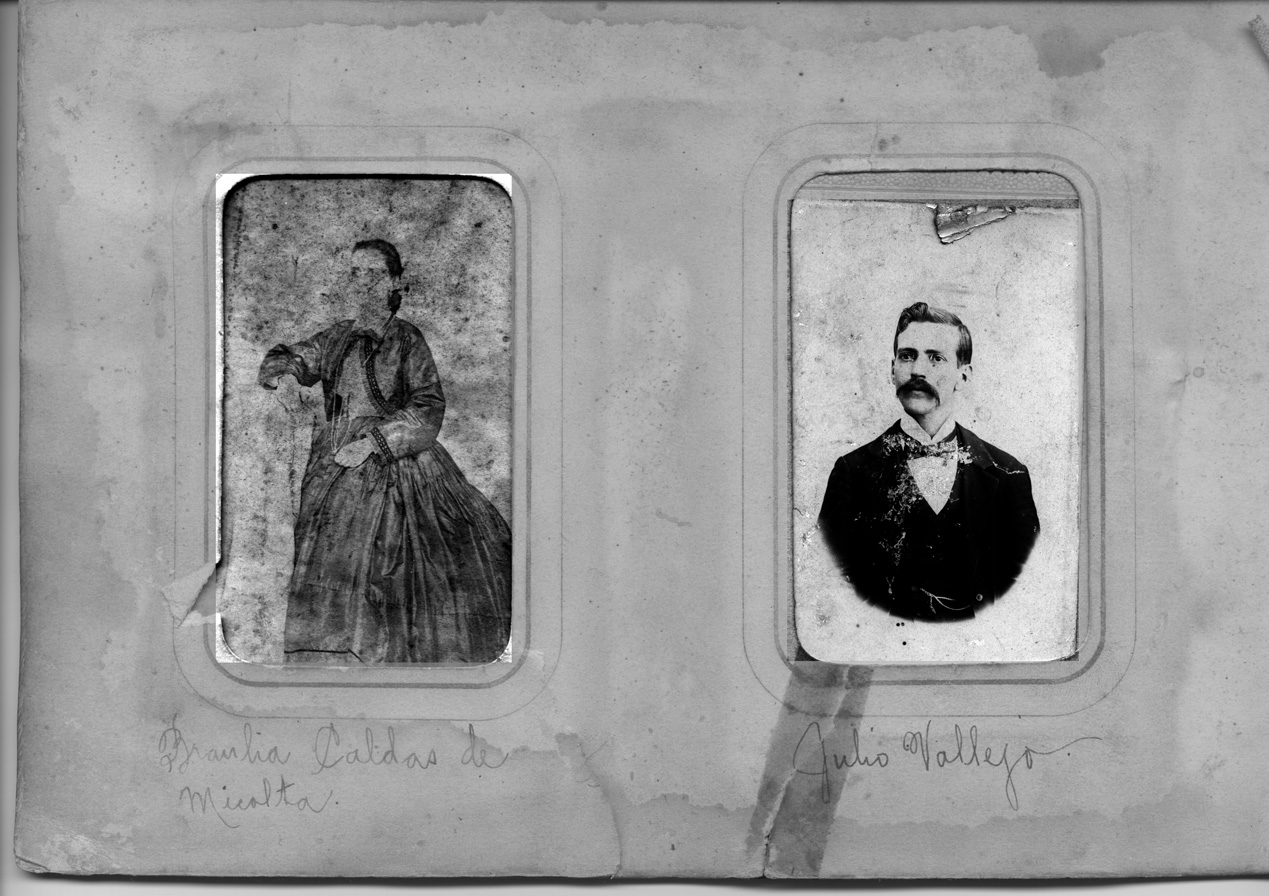 Braulia Caldas de
Micolta.
Julio Vallejo.